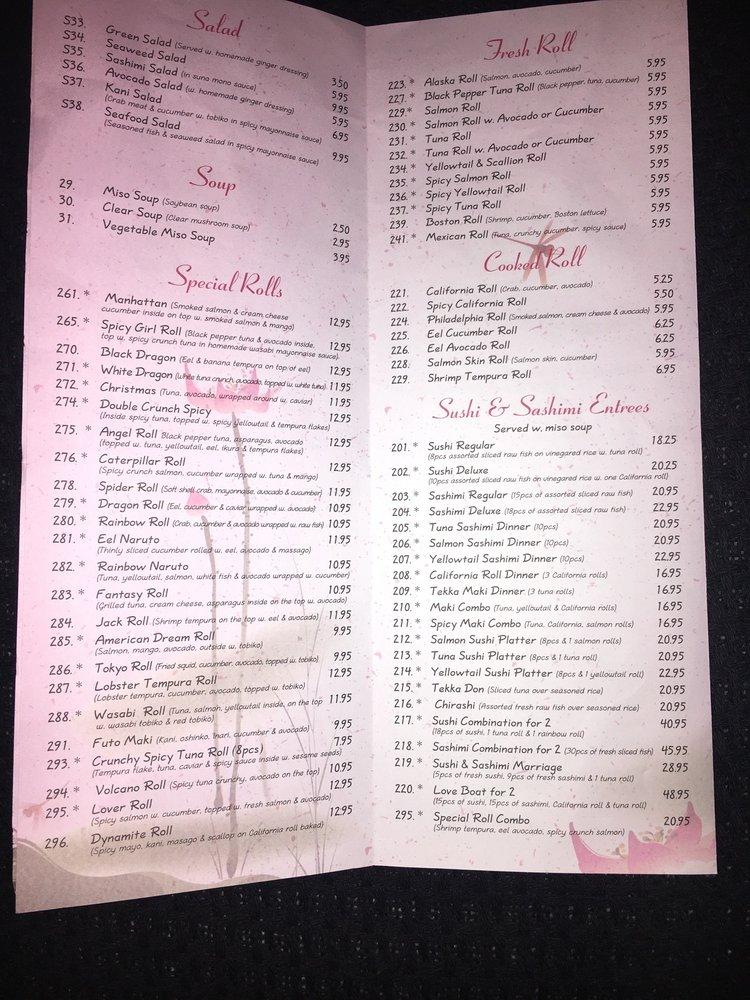 Salad
S33. Green Salad (Served w. homemade ginger dressing) 3.50
S34. Seaweed Salad 5.95
S35. Sashimi Salad (in suno mono sauce) 9.95
S36. Avocado Salad (w. homemade ginger dressing) 5.95
S37. Kani Salad 6.95
(Crab meat & cucumber w. tobiko in spicy mayonnaise sauce)
S38. Seafood Salad 9.95
(Seasoned fish & seaweed salad in spicy mayonnaise sauce)
Soup
29. Miso Soup (Soybean soup) 2.50
30. Clear Soup (Clear mushroom soup) 2.95
31. Vegetable Miso Soup 3.95
Special Rolls
261. * Manhattan (Smoked salmon & cream cheese
cucumber inside on top w. smoked salmon & mango) 12.95
265. * Spicy Girl Roll (Black pepper tuna & avocado inside,
top w. spicy crunch tuna in homemade wasabi mayonnaise sauce) 12.95
270. Black Dragon (Eel & banana tempura on top of eel) 12.95
271. * White Dragon (White tuna crunch, avocado, topped w. white tuna) 11.95
272. * Christmas (Tuna, avocado, wrapped around w. caviar) 11.95
274. * Double Crunch Spicy 12.95
(Inside spicy tuna, topped w. spicy yellowtail & tempura flakes)
275. * Angel Roll Black pepper tuna, asparagus, avocado 12.95
(topped w. tuna, yellowtail, eel, ikura & tempura flakes)
276. * Caterpillar Roll 12.95
(Spicy crunch salmon, cucumber wrapped w. tuna & mango)
278. Spider Roll (Soft shell crab, mayonnaise, avocado & cucumber) 11.95
279. * Dragon Roll (Eel, cucumber & caviar wrapped w. avocado) 10.95
280. * Rainbow Roll (Crab, cucumber & avocado wrapped w. raw fish) 10.95
281. * Eel Naruto 11.95
(Thinly sliced cucumber rolled w. eel, avocado & massago)
282. * Rainbow Naruto 10.95
(Tuna, yellowtail, salmon, white fish & avocado wrapped w. cucumber)
283. * Fantasy Roll 10.95
(Grilled tuna, cream cheese, asparagus inside on the top w. avocado)
284. Jack Roll (Shrimp tempura on the top w. eel & avocado) 11.95
285. * American Dream Roll 9.95
(Salmon, mango, avocado, outside w. tobiko)
286. * Tokyo Roll (Fried squid, cucumber, avocado, topped w. tobiko) 9.95
287. * Lobster Tempura Roll 12.95
(Lobster tempura, cucumber, avocado, topped w. tobiko)
288. * Wasabi Roll (Tuna, salmon, yellowtail inside, on the top 11.95
w. wasabi tobiko & red tobiko)
291. Futo Maki (Kani, oshinko, Inari, cucumber & avocado) 9.95
293. * Crunchy Spicy Tuna Roll (8pcs) 7.95
(Tempura flake, tuna, caviar & spicy sauce inside w. sesame seeds)
294. * Volcano Roll (Spicy tuna crunchy, avocado on the top) 10.95
295. * Lover Roll 12.95
(Spicy salmon w. cucumber, topped w. fresh salmon & avocado)
296. Dynamite Roll 12.95
(Spicy mayo, kani, masago & scallop on California roll baked)
Fresh Roll
223. * Alaska Roll (Salmon, avocado, cucumber) 5.95
227. * Black Pepper Tuna Roll (Black pepper, tuna, cucumber) 5.95
229. * Salmon Roll 5.95
230. * Salmon Roll w. Avocado or Cucumber 5.95
231. * Tuna Roll 5.95
232. * Tuna Roll w. Avocado or Cucumber 5.95
234. * Yellowtail & Scallion Roll 5.95
235. * Spicy Salmon Roll 5.95
236. * Spicy Yellowtail Roll 5.95
237. * Spicy Tuna Roll 5.95
239. Boston Roll (Shrimp, cucumber, Boston lettuce) 5.95
241. * Mexican Roll (Tuna, crunchy cucumber, spicy sauce) 5.95
Cooked Roll
221. California Roll (Crab, cucumber, avocado) 5.25
222. Spicy California Roll 5.50
224. Philadelphia Roll (Smoked salmon, cream cheese & avocado) 5.95
225. Eel Cucumber Roll 6.25
226. Eel Avocado Roll 6.25
228. Salmon Skin Roll (Salmon skin, cucumber) 5.95
229. Shrimp Tempura Roll 6.95
Sushi & Sashimi Entrees
Served w. miso soup
201. * Sushi Regular 18.25
(8pcs assorted sliced raw fish on vinegared rice w. tuna roll)
202. * Sushi Deluxe 20.25
(10pcs assorted sliced raw fish on vinegared rice w. one California roll)
203. * Sashimi Regular (15pcs of assorted sliced raw fish) 20.95
204. * Sashimi Deluxe (18pcs of assorted sliced raw fish) 22.95
205. * Tuna Sashimi Dinner (10pcs) 20.95
206. * Salmon Sashimi Dinner (10pcs) 20.95
207. * Yellowtail Sashimi Dinner (10pcs) 22.95
208. * California Roll Dinner (3 California rolls) 16.95
209. * Tekka Maki Dinner (3 tuna rolls) 16.95
210. * Maki Combo (Tuna, yellowtail & California rolls) 16.95
211. * Spicy Maki Combo (Tuna, California, salmon rolls) 16.95
212. * Salmon Sushi Platter (8pcs & 1 salmon roll) 20.95
213. * Tuna Sushi Platter (8pcs & 1 tuna roll) 20.95
214. * Yellowtail Sushi Platter (8pcs & 1 yellowtail roll) 22.95
215. * Tekka Don (Sliced tuna over seasoned rice) 20.95
216. * Chirashi (Assorted fresh raw fish over seasoned rice) 20.95
217. * Sushi Combination for 2 40.95
(18pcs of sushi, 1 tuna roll & 1 rainbow roll)
218. * Sashimi Combination for 2 (30pcs of fresh sliced fish) 45.95
219. * Sushi & Sashimi Marriage 28.95
(5pcs of fresh sushi, 9pcs of fresh sashimi & 1 tuna roll)
220. * Love Boat for 2 48.95
(15pcs of sushi, 15pcs of sashimi, California roll & tuna roll)
295. * Special Roll Combo 20.95
(Shrimp tempura, eel avocado, spicy crunch salmon)